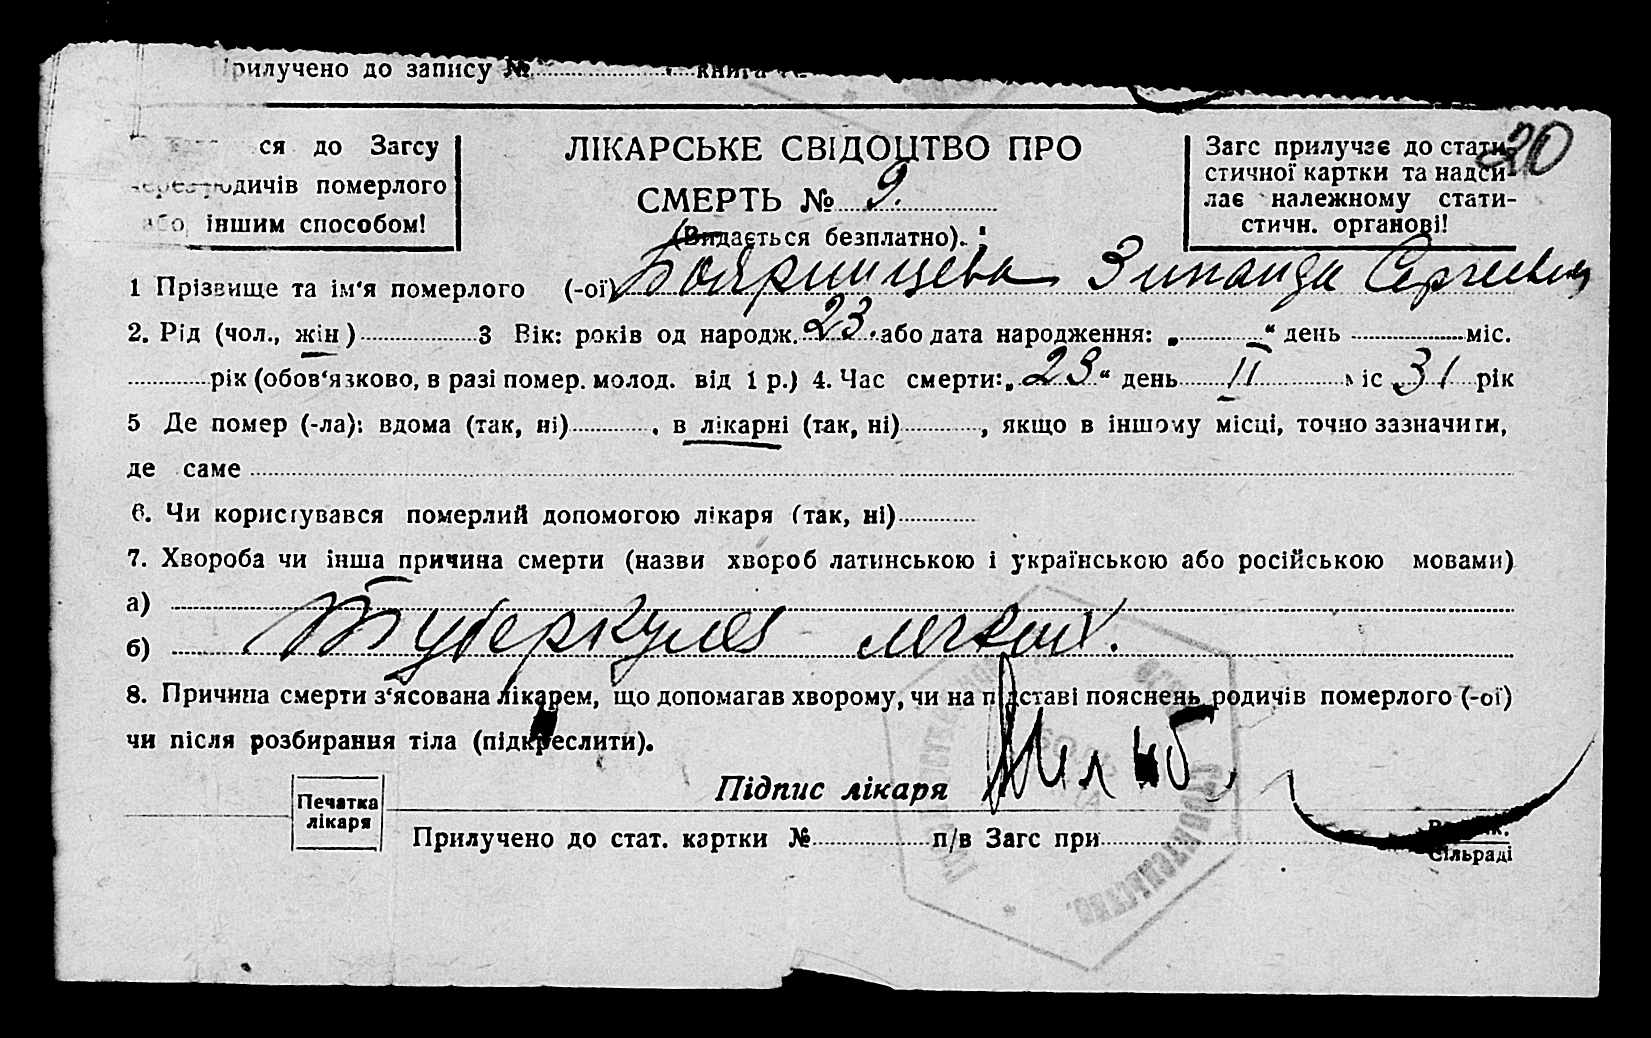 Прилучено до запису № книга
20
ся до Загсу
через родичів померлого
або іншим способом!
ЛІКАРСЬКЕ СВІДОЦТВО ПРО
СМЕРТЬ № 9.
(Видається безплатно).
Загс прилучає до стати-
стичної картки та надси-
лає належному стати-
стичн. органові!
1 Прізвище та ім'я померлого (-ої) Бояринцева Зинаида Сергеевна
2. Рід (чол., жін) 3 Вік: років од народж. 23. або дата народження: „ “ день міс.
рік (обов'язково, в разі помер. молод. від 1 р.) 4. Час смерти: „23“ день II міс 31 рік
5 Де помер (-ла): вдома (так, ні) , в лікарні (так, ні) , якщо в іншому місці, точно зазначити,
де саме
6. Чи користувався померлий допомогою лікаря (так, ні)
7. Хвороба чи інша причина смерти (назви хвороб латинською і українською або російською мовами)
а)
б) Туберкулез легких.
8. Причина смерти з'ясована лікарем, що допомагав хворому, чи на підставі пояснень родичів померлого (-ої)
чи після розбирання тіла (підкреслити).
Підпис лікаря
Печатка
лікаря
Прилучено до стат. картки № п/в Загс при
Сільраді